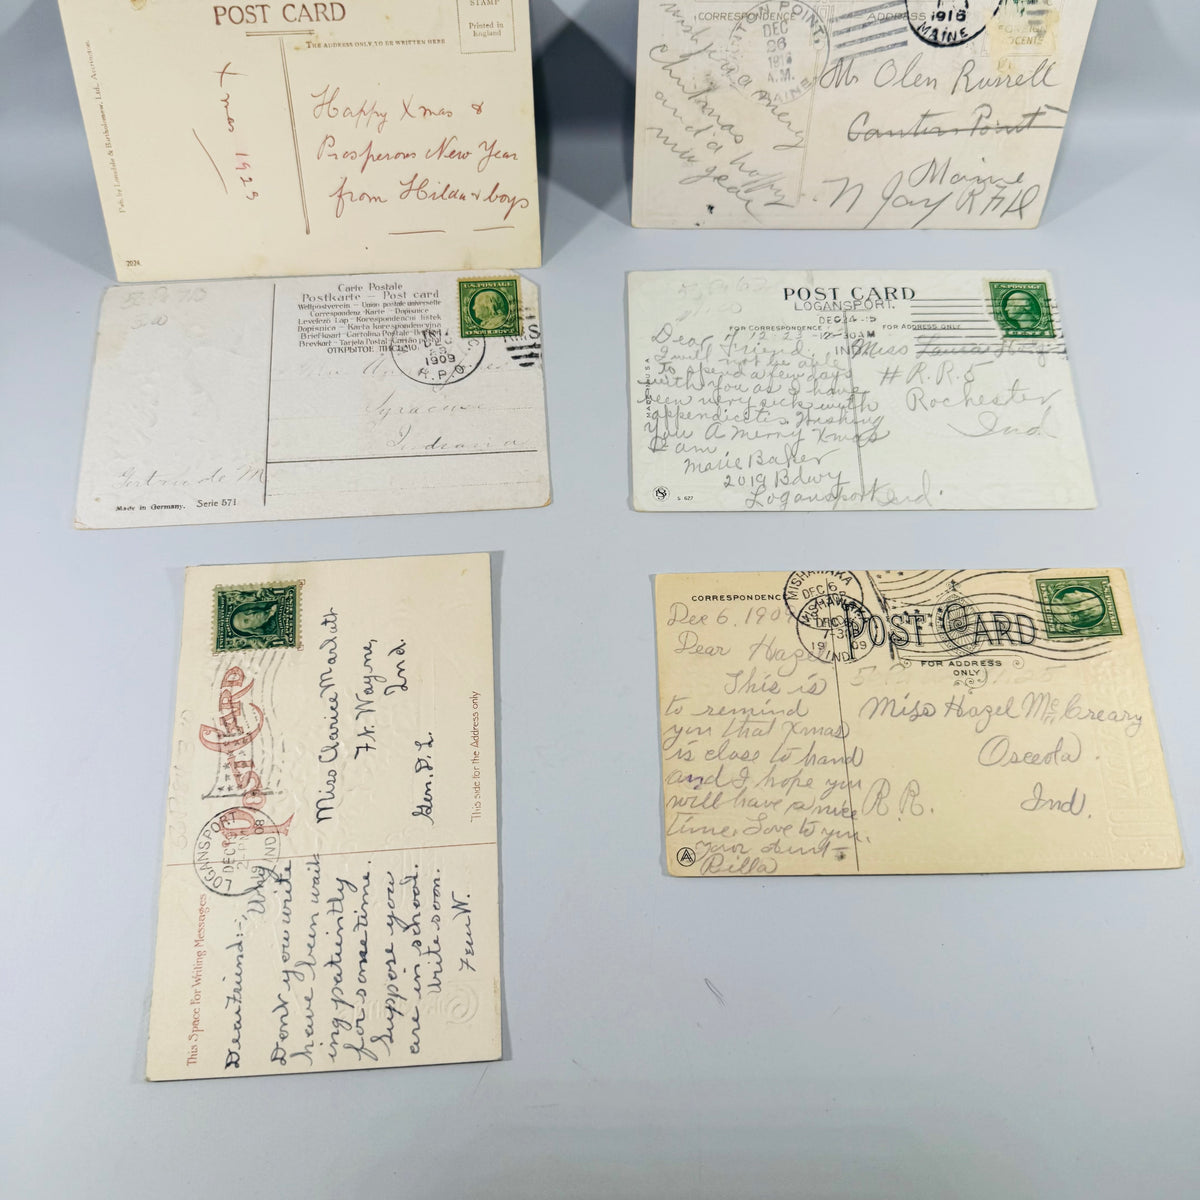 POST CARD
THE ADDRESS ONLY TO BE WRITTEN HERE
STAMP
Printed in
England
Xmas 1923
Happy Xmas &
Prosperous New Year
from Hilda & boys
2024.
CORRESPONDENCE
ADDRESS
1916
MAINE
POINT,
DEC
26
A.M.
MAINE
merry
christmas
and a happy
new year
Mr Olen Russell
Canton Point
Maine
N Jay R F D
Carte Postale
Postkarte — Post card
Weltpostverein — Union postale universelle
Correspondenz Karte — Dopisnice
Levelező Lap — Korespondencni listek
ОТКРЫТОЕ ПИСЬМО.
U.S. POSTAGE
DEC
23
1909
R.P.O.
Syracuse
Indiana
Gertrude M
Made in Germany. Serie 571
POST CARD
LOGANSPORT.
DEC 24 -15
12-30AM
IND
FOR CORRESPONDENCE
FOR ADDRESS ONLY
U.S. POSTAGE
MADE IN U.S.A
Dear Friend. 12-23-15
I will not be able
to spend a few days
with you as I have
been very sick with
appendicitis. Wishing
You A Merry Xmas
I am
Marie Baker
2019 Bdwy
Logansport Ind.
Miss Laura
# R.R.5
Rochester
Ind.
S. 627
POST CARD
This side for the Address only
This Space For Writing Messages
LOGANSPORT
DEC
IND
Miss Clarice Markatt
Ft. Wayne,
Ind.
Gen. DL.
Dear Friend:-,
Why
Don't you write
have been wait
ing patiently
for some time.
Suppose you
are in school.
Write soon.
Fern W.
CORRESPONDENCE
POST CARD
FOR ADDRESS
ONLY
MISHAWAKA
DEC 6
MISHAWAKA
DEC 6
7-30
1909
IND.
Dec 6, 1909
Dear Hazel
This is
to remind
you that Xmas
is close to hand
and I hope you
will have a nice
time. Love to you.
your Aunt-
Rilla
Miss Hazel McCreary
Osceola
R.R. Ind.